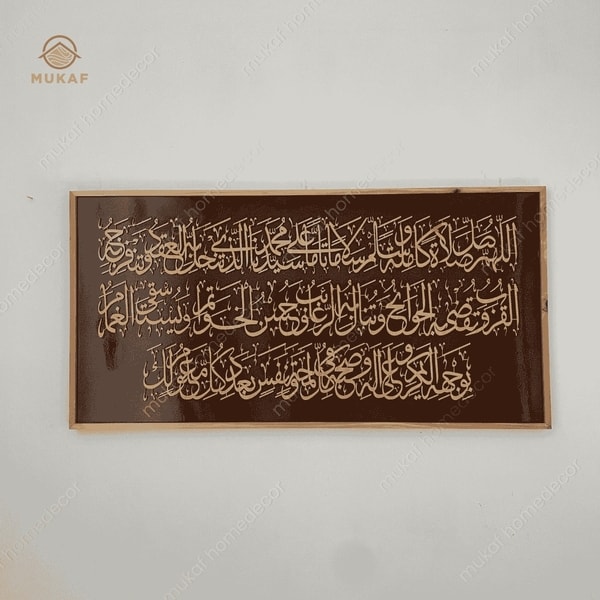 MUKAF
اللهم صل صلاة كاملة وسلم سلاما تاما على سيدنا محمد الذي تنحل به العقد وتنفرج به
الكرب وتقضى به الحوائج وتنال به الرغائب وحسن الخواتم ويستسقى الغمام
بوجهه الكريم وعلى آله وصحبه في كل لمحة ونفس بعدد كل معلوم لك
mukaf homedecor